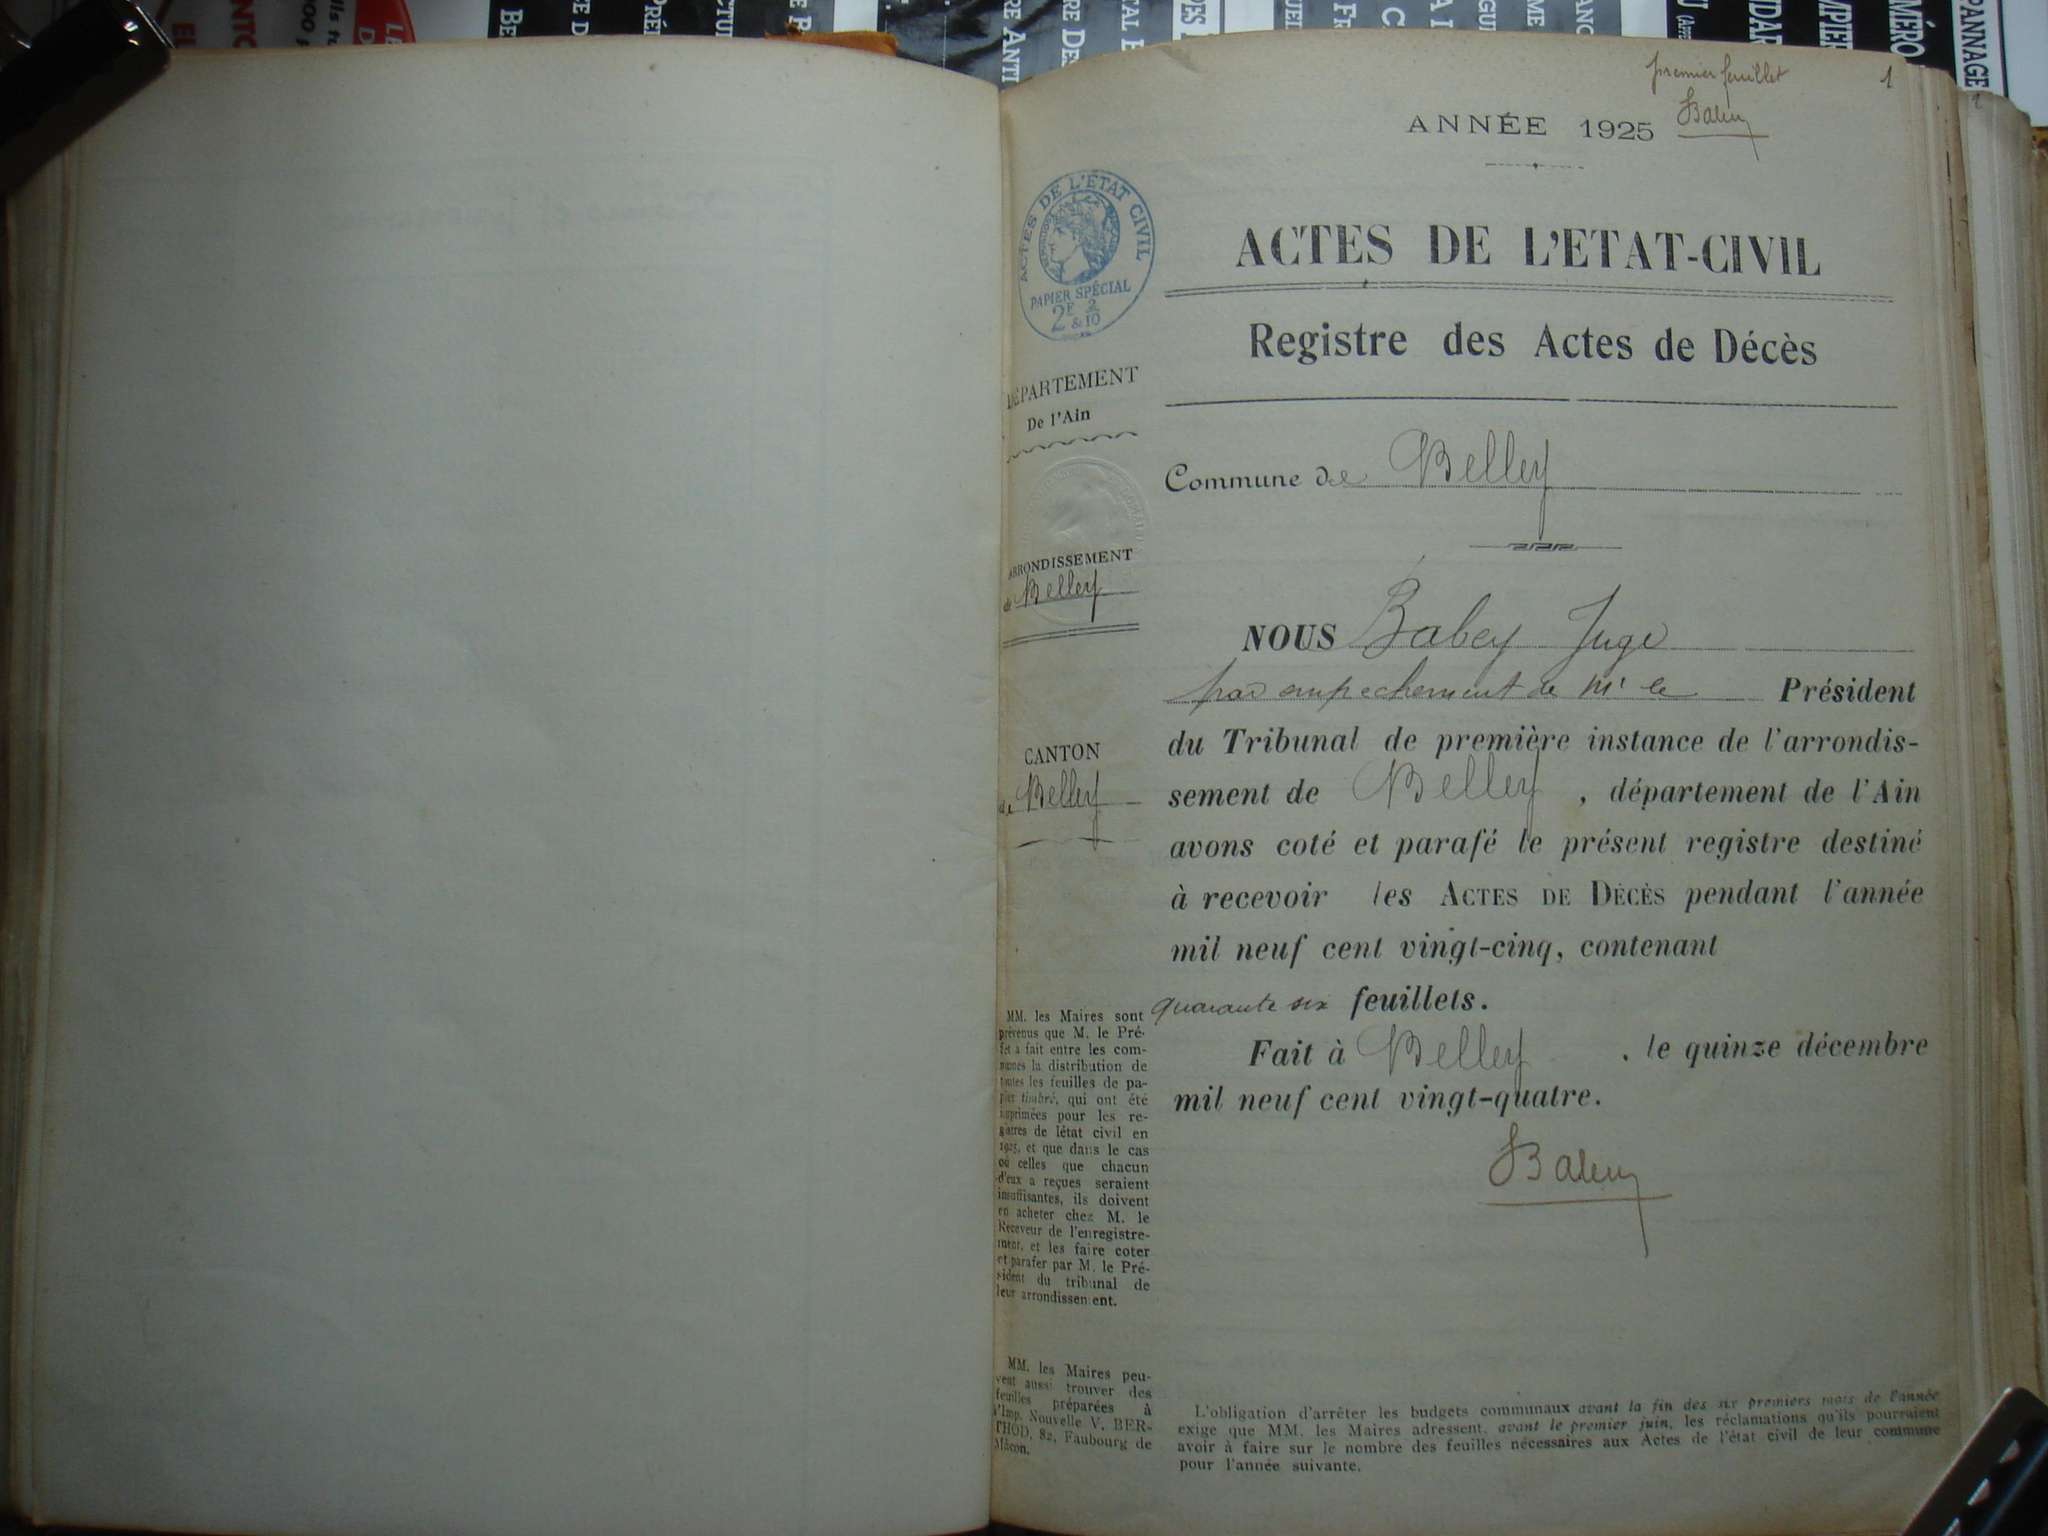 premier feuillet
1
Babey
ANNÉE 1925
ACTES DE L'ÉTAT CIVIL
PAPIER SPÉCIAL
2F 2
& 10
ACTES DE L'ETAT-CIVIL
Registre des Actes de Décès
DÉPARTEMENT
De l'Ain
Commune de Belley
ARRONDISSEMENT
de Belley
NOUS Babey Juge
par empechement de Mr le Président
du Tribunal de première instance de l'arrondis-
sement de Belley, département de l'Ain
avons coté et parafé le présent registre destiné
à recevoir les ACTES DE DÉCÈS pendant l'année
mil neuf cent vingt-cinq, contenant
quarante six feuillets.
Fait à Belley, le quinze décembre
mil neuf cent vingt-quatre.
Babey
CANTON
de Belley
MM. les Maires sont
prévenus que M. le Pré-
fet a fait entre les com-
munes la distribution de
toutes les feuilles de pa-
pier timbré, qui ont été
imprimées pour les re-
gistres de létat civil en
1925, et que dans le cas
où celles que chacun
d'eux a reçues seraient
insuffisantes, ils doivent
en acheter chez M. le
Receveur de l'enregistre-
ment, et les faire coter
et parafer par M. le Pré-
sident du tribunal de
leur arrondissement.
MM. les Maires peu-
vent aussi trouver des
feuilles préparées à
l'Imp. Nouvelle V. BER-
THOD, 82, Faubourg de
Mâcon.
L'obligation d'arrêter les budgets communaux avant la fin des six premiers mois de l'année
exige que MM. les Maires adressent, avant le premier juin, les réclamations qu'ils pourraient
avoir à faire sur le nombre des feuilles nécessaires aux Actes de l'état civil de leur commune
pour l'année suivante.